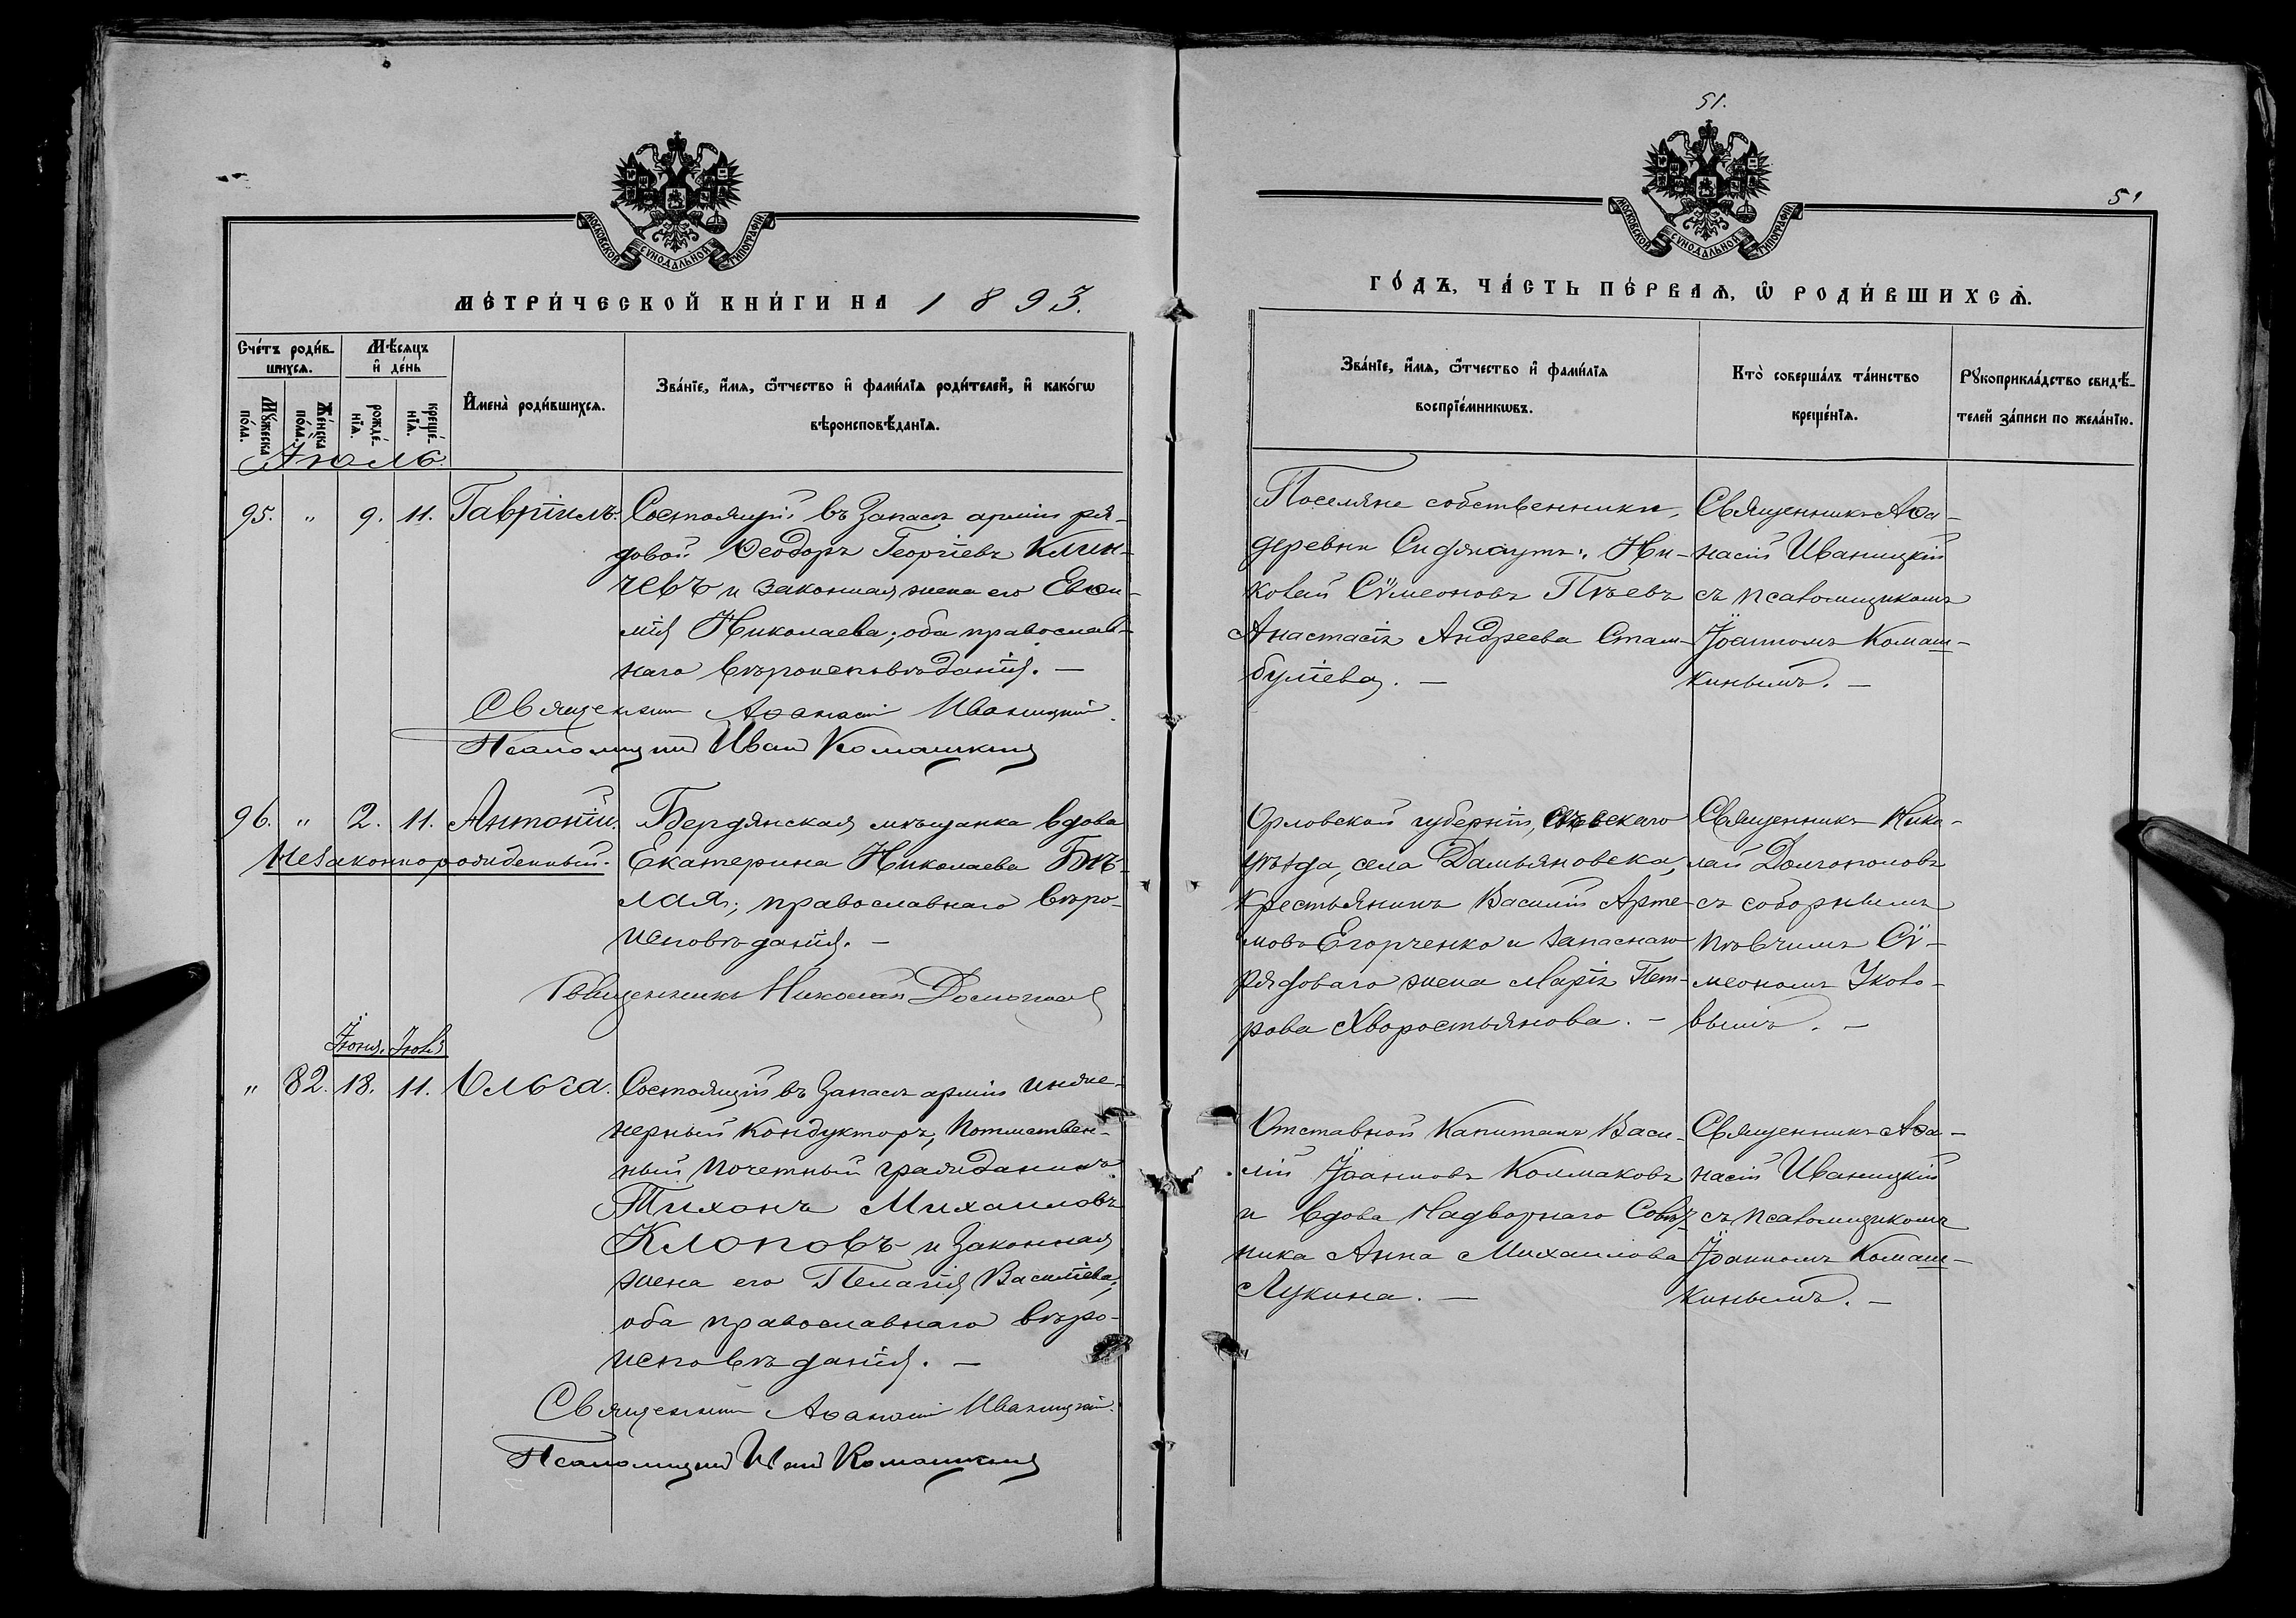 МОСКОВСКОЙ СѴНОДАЛЬНОЙ ТИПОГРАФІИ
МЕТРИ́ЧЕСКОЙ КНИ́ГИ НА 1893.
Сче́тъ роди́в-
шихсѧ.
Мѣ́сѧцъ
и҆ де́нь
Мꙋ́жеска
по́ла.
Же́нска
по́ла.
рожде́-
нїѧ.
креще́-
нїѧ.
И҆мена̀ роди́вшихсѧ.
Зва́нїе, и҆́мѧ, ѻ҆́тчество и҆ фами́лїѧ роди́телей, и҆ како́гѡ
вѣроисповѣ́данїѧ.
Іюль
95. " 9. 11. Гавріилъ.
Состоящій въ Запасѣ арміи ря-
довой Ѳеодоръ Георгіевъ Клин-
чевъ и законная жена его Евѳи-
мія Николаева; оба православ-
наго вѣроисповѣданія. —
Священникъ Аѳанасій Иваницкій.
Псаломщикъ Иванъ Комашкинъ
96. " 2. 11. Антоній.
Незаконнорожденный.
Бердянская мѣщанка вдова
Екатерина Николаева Бѣ-
лая; православнаго вѣро-
исповѣданія. —
Священникъ Николай Долгополовъ
Іюня. Іюля
" 82. 18. 11. Ольга.
Состоящій въ Запасѣ арміи инже-
нерный кондукторъ, Потомствен-
ный почетный гражданинъ
Тихонъ Михаиловъ
Клоповъ и Законная
жена его Пелагія Василіева;
оба православнаго вѣро-
исповѣданія. —
Священникъ Аѳанасій Иваницкій.
Псаломщикъ Иванъ Комашкинъ
51.
51
МОСКОВСКОЙ СѴНОДАЛЬНОЙ ТИПОГРАФІИ
ГО́ДЪ, ЧА́СТЬ ПЕ́РВАѦ, Ѡ҆ РОДИ́ВШИХСѦ.
Зва́нїе, и҆́мѧ, ѻ҆́тчество и҆ фами́лїѧ
воспрїе́мникѡвъ.
Кто̀ соверша́лъ та́инство
креще́нїѧ.
Рꙋкоприкла́дство свидѣ́-
телей за́писи по жела́нїю.
Поселяне собственники,
деревни Ни-
колай Сѵмеоновъ Пѣевъ
Анастасія Андреева Стам-
буліева. —
Священникъ Аѳа-
насій Иваницкій
съ псаломщикомъ
Іоанномъ Комаш-
кинымъ. —
Орловской губерніи, Сѣвскаго
уѣзда, села Дамьяновска,
крестьянинъ Василій Арте-
мовъ Егорченко и запаснаго
рядоваго жена Марія Пет-
рова Хворостьянова. —
Священникъ Нико-
лай Долгополовъ
съ соборнымъ
пѣвчимъ Сѵ-
меономъ Уколо-
вымъ. —
Отставной Капитанъ Васи-
лій Іоанновъ Колмаковъ
и вдова Надворнаго Совѣт-
ника Анна Михаилова
Лукина. —
Священникъ Аѳа-
насій Иваницкій
съ псаломщикомъ
Іоанномъ Комаш-
кинымъ. —